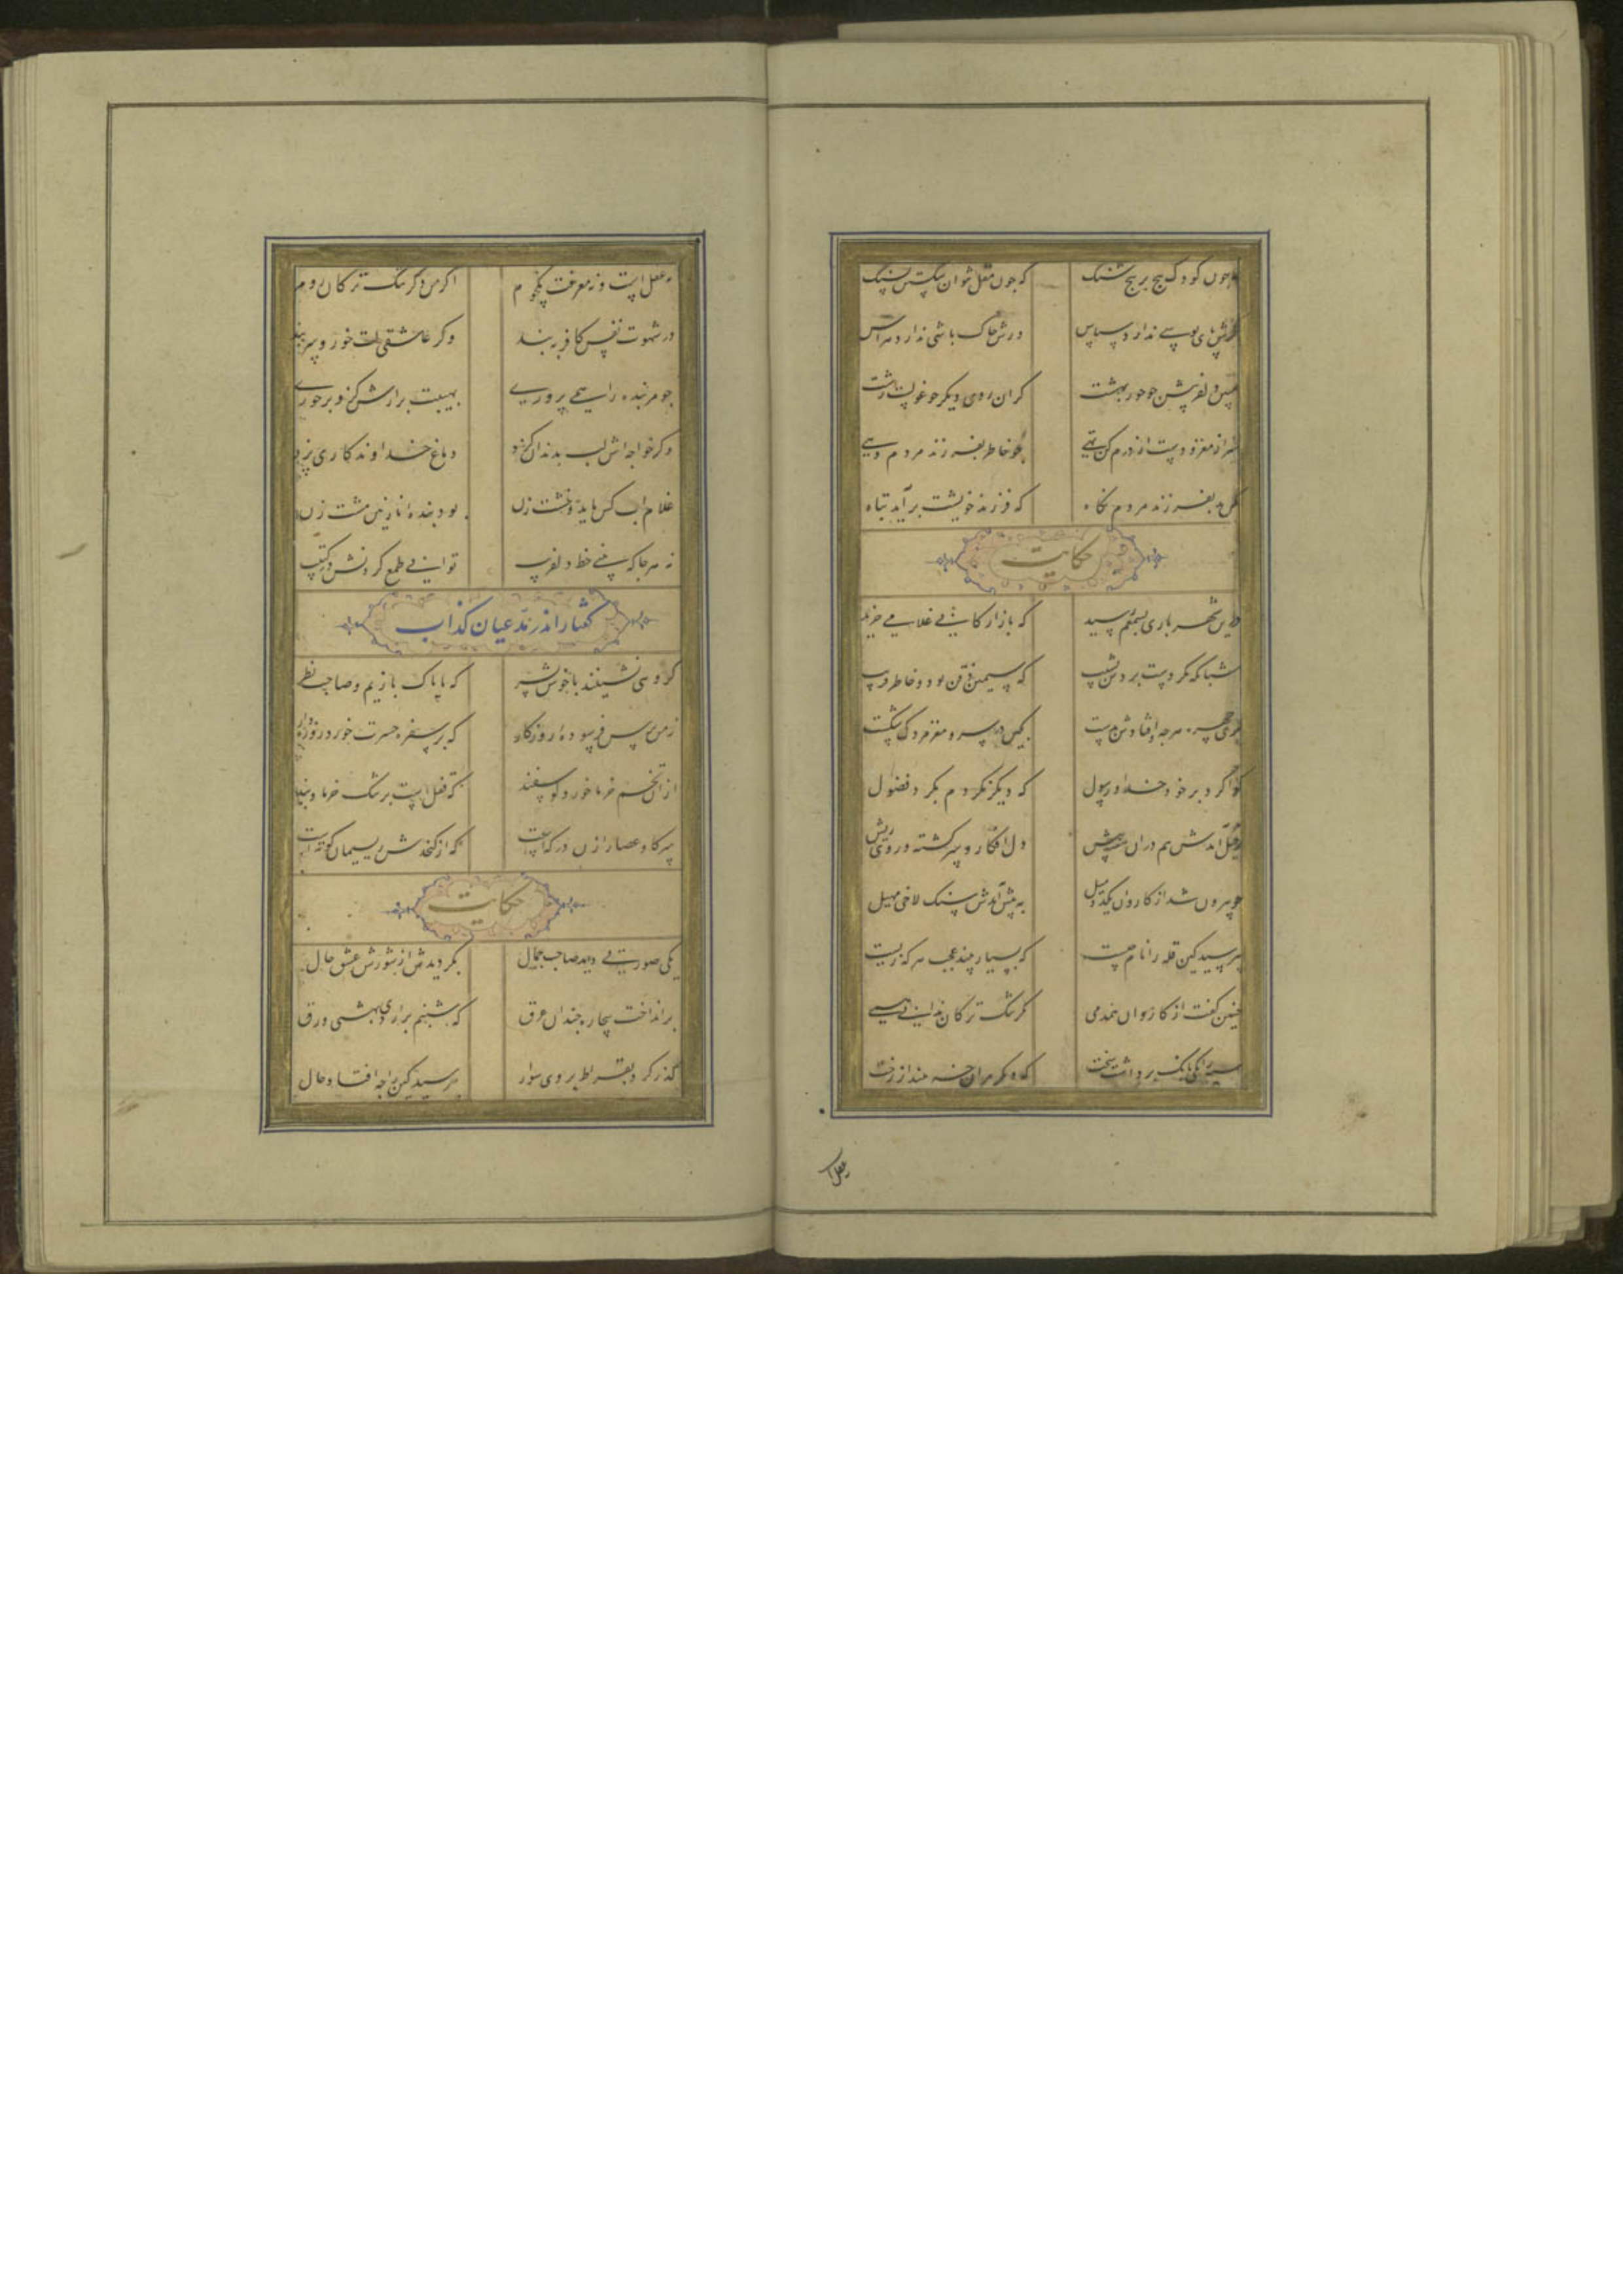 چون کودک پیچ بر پیچ شنک که چون مقل نتوان شکستن بسنک
کرش پای بوسی ندارد سپاس ورش خاک باشی ندارد هراس
مبین دلفریبش چو حور بهشت کزان روی دیکر چو غولست زشت
سر از مغز و دست از درم کن تهی چو خاطر بفرزند مردم دهی
مکن بد بفرزند مردم نکاه که فرزند خویشت برآید تباه
حکایت
درین شهر باری بسمعم رسید که بازارکانی غلامی خرید
شبانکه مکر دست بردش بسیب که سیمین زنخ بود و خاطر فریب
پری چهره هرچه اوفتادش بدست بکین در سر و مغز مردک شکست
کوا کرد بر خود خدا و رسول که دیکر نکردم بکرد فضول
رحیل آمدش هم دران هفته پیش دل افکار و سر کشته و روی ریش
چو بیرون شد از کازرون یکدو میل به پیش آمدش سنک لاخی مهیل
بپرسید کین قله را نام چیست که بسیار بیند عجب هر که زیست
چنین کفت از کاروان همدمی مکر تنک ترکان ندانی همی
سیه را یکی بانک برداشت سخت که دیکر مران خر بینداز رخت
نه عقلست و نه معرفت یکجوم اکر من دکر تنک ترکان روم
در شهوت نفس کافر ببند وکر عاشقی لت خور و سر ببند
چو مر بنده را همی پروری بهیبت برارش کزو برخوری
وکر خواجه اش لب بدندان کزد دماغ خداوندکاری پزد
غلام آب کش باید و خشت زن بود بنده نازنین مشت زن
نه هر جا که بینی خط دلفریب توانی طمع کردنش در کتیب
کفتار اندر مدعیان کذاب
کروهی نشینند با خوش پسر که ما پاک بازیم و صاحب نظر
ز من پرس فرسوده روزکار که بر سفره حسرت خورد روزه دار
ازان تخم خرما خورد کوسفند که قفلست بر تنک خرما و بند
سر کاو عصار ازان در که است که از کنجدش ریسمان کوته است
حکایت
یکی صورتی دید صاحب جمال بکردیدش از شورش عشق حال
برانداخت بیچاره چندان عرق که شبنم بر اردیبهشتی ورق
کذر کرد بقراط بر وی سوار بپرسید کین را چه افتاد حال